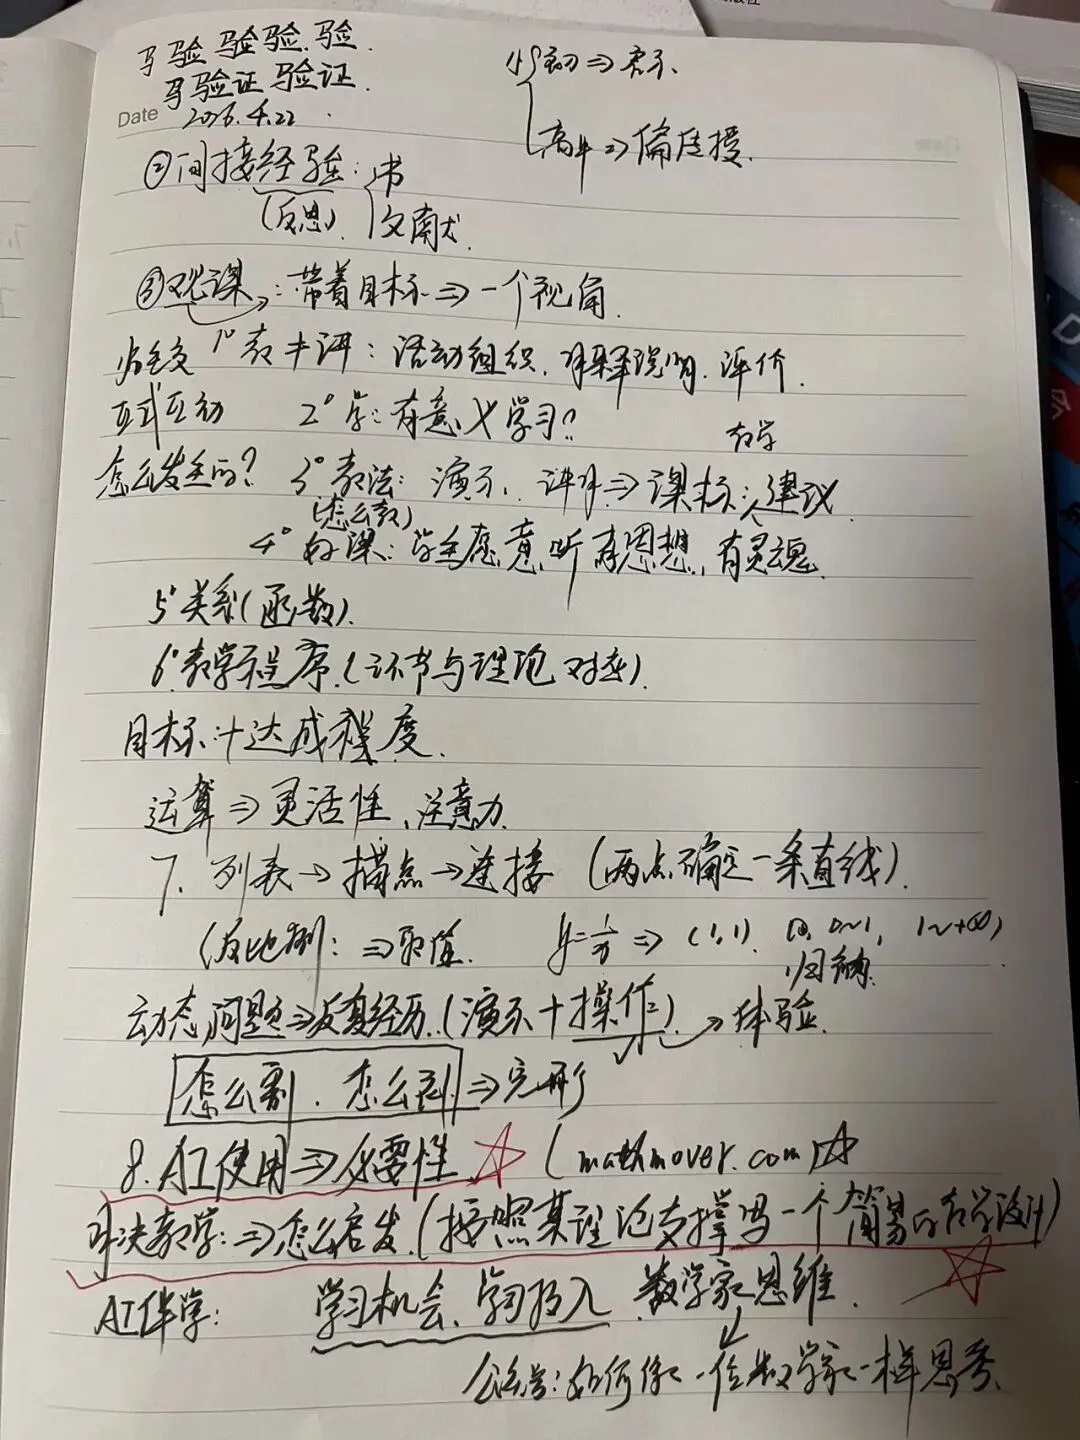 马 验 验 验 验
马 验证 验证
Date 2026.4.22
小初⇒启示
高中⇒偏传授
②间接经验:书
(反思) 文献
③观课:带着目标⇒一个视角
1°教 :活动组织、解释说明、评价
师生交互式互动怎么发生的?
2°学:有意义学习?
教学
3°教法:演示、讲解⇒课标:建议
(怎么教)
4°好课:学生愿意听有思想,有灵魂
5°关系(函数)
6°教学程序(环节与理论对应)
目标:达成程度
运算⇒灵活性、注意力
7. 列表→描点→连接(两点确定一条直线)
(反比例:⇒取值 y=1/x⇒(1,1) 0, 0~1, 1~+∞)
归纳
动态问题⇒反复经历(演示+操作)→体验
怎么割、怎么 ⇒完形
8.AI使用⇒必要性 ☆ (mathmover.com)☆
解决教学:⇒怎么启发(按照某理论支撑写一个简易的教学设计)
☆
AI伴学: 学习机会、学习投入 数学家思维
公众号:如何像一位数学家一样思考